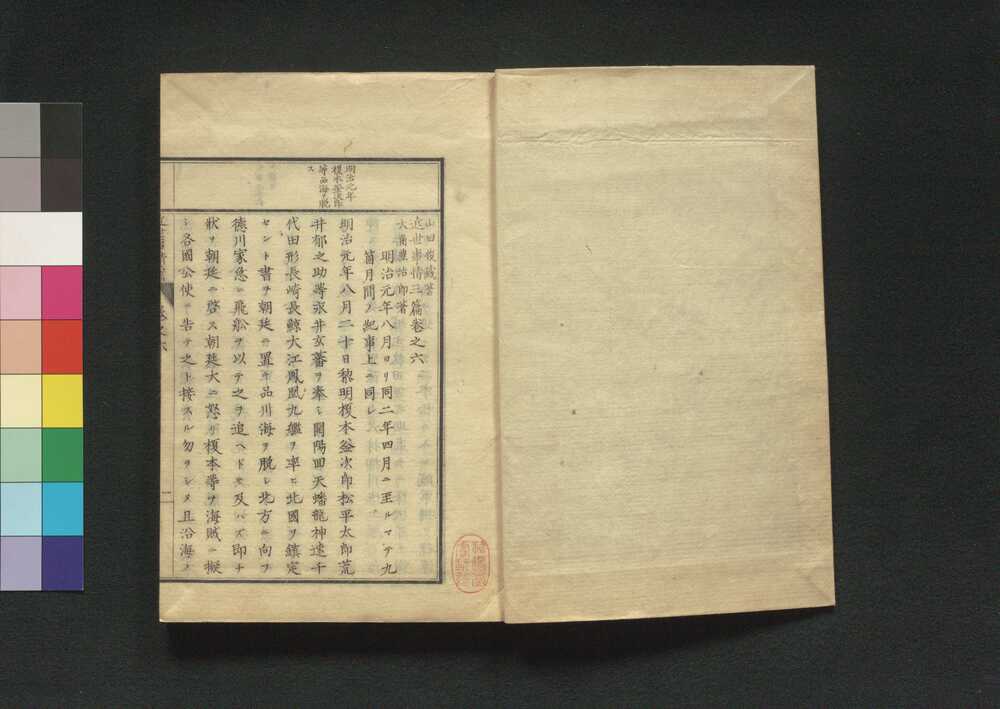 近世事情三篇巻之六
山田俊蔵著
大角豊治郎著
明治元年八月ヨリ同二年四月ニ至ルマテ九
箇月間ノ紀事上ニ同シ
明治元年
榎本釜次郎
等品海ヲ脱
ス
明治元年八月二十日黎明榎本釜次郎松平太郎荒
井郁之助等永井玄蕃ヲ奉シ開陽回天蟠龍神速千
代田形長崎長鯨大江鳳凰九艦ヲ率ヒ北國ヲ鎮定
セント書ヲ朝廷ニ置キ品川海ヲ脱シ北方ニ向フ
徳川家急ニ飛船ヲ以テ之ヲ追ヘドモ及バズ即チ
狀ヲ朝廷ニ啓ス朝廷大ニ怒リ榎本等ヲ海賊ニ擬
シ各國公使ニ告テ之ト接スル勿ラシメ且沿海ノ